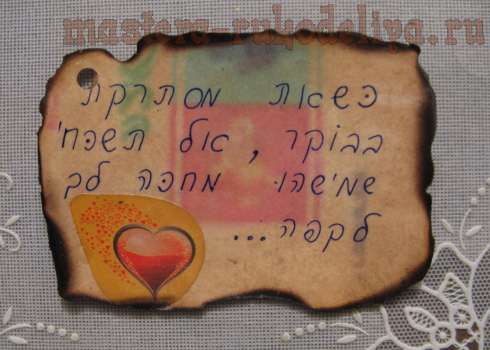 masterc-rukodeliya.ru
כשאת מסתרקת
בבוקר, אל תשכחי
שמישהו מחכה לך
לקפה...